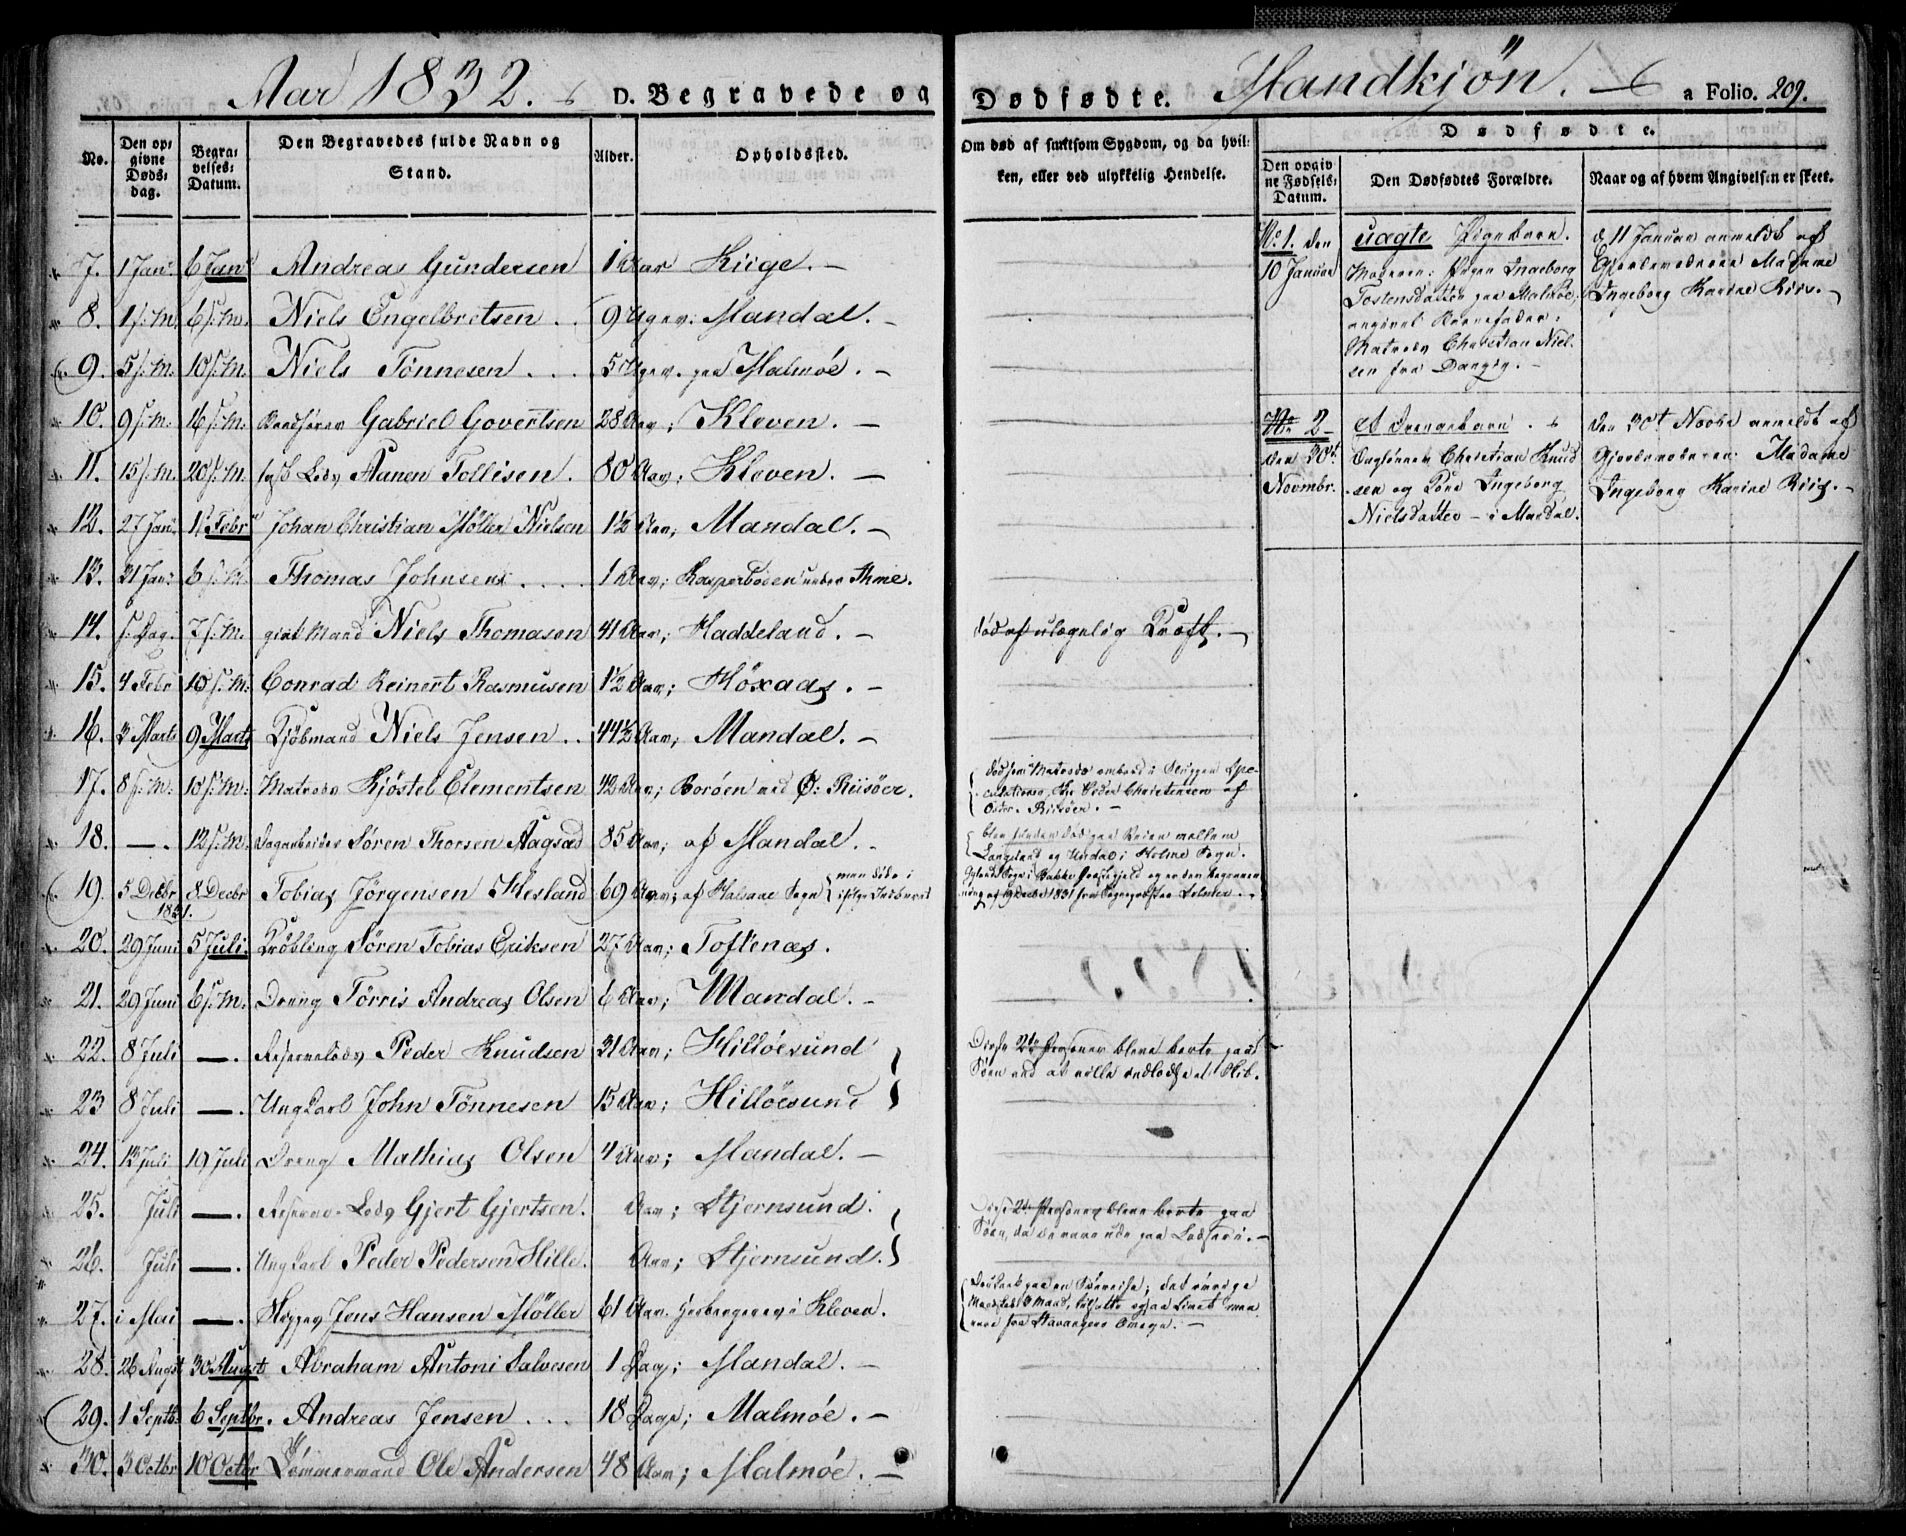 Aar 1832. D. Begravede og
Dødfødte. Mandkjøn. a Folio. 209.
No. Den opgivne Dødsdag. Begravelses-Datum. Den Begravedes fulde Navn og Stand. Alder. Opholdssted.
Om død af smitsom Sygdom, og da hvilken, eller ved ulykkelig Hendelse.
Dødfødte.
Den opgivne Fødsels-Datum. Den Dødfødtes Forældre. Naar og af hvem Angivelsen er skeet.
7. 1 Jan. 6 Jan. Andreas Gundersen 1 Aar Kiige. –
8. 1 s: M. 6 s: M. Niels Engelbretsen . . 9 Uger. Mandal. –
9. 5 s: M. 10 s: M. Niels Tönnesen . . . 5 Uger. paa Malmöe. –
10. 9 s: M. 16 s: M. Gabriel Govertsen 28 Aar; Kleven. –
11. 15 s: M. 20 s: M. Lods Aanen Tollisen. 80 Aar; Kleven. –
12. 27 Jan. 1 Febr Johan Christian Möller Nielsen 1½ Aar; Mandal. –
13. 31 Jan. 6 s: M. Thomas Johnsen . . . . 1 Aar; under Ihme.
14. s: Dag. 7 s: M. gift Mand Niels Thomasen 41 Aar; Haddeland. –
død af
15. 4 Febr 10 s: M: Conrad Reinert Rasmusen 1½ Aar; Höxaas. –
16. 3 Marts 9 Marts Kjöbmand Niels Jensen . . 44½ Aar; Mandal. –
17. 8 s: M: 10 s: M: Matros Kjöstel Clementsen 42 Aar; Boröen ved Ö: Riisöer.
död som Matros ombord i Christensen af
Öster-Riisöer. –
18. – . 12 s: M: Dagarbeider Sören Thorsen Aagsad 85 Aar; af Mandal. –
blev funden död paa Veien mellem
og Undal i Holme Sogn.
19. 5 Decbr 1831. 8 Decbr Tobias Jörgensen Hesland 69 Aar; af Halsaae Sogn
20. 29 Juni 5 Juli. Sören Tobias Eriksen 27 Aar; Toftenæs.
21. 29 Juni 6 s: M. Dreng Törris Andreas Olsen 6 Aar; Mandal. –
22. 8 Juli – . Reservelods Peder Knudsen 31 Aar; Hillöesund
Disse 2de Personer bleve borte paa
Söen ved at ville indlodse et Skib.
23 8 Juli – . Ungkarl John Tönnesen 15 Aar; Hillöesund
24. 13 Juli 19 Juli Dreng Mathias Olsen 4 Aar; Mandal. –
25. Juli – . Reserve-Lods Gjert Gjertsen. Aar; Stjernsund.
Disse 2de Personer bleve borte paa
Söen, da de vare ude paa Lodseri. –
26. Juli – . Ungkarl Peder Pedersen Hille. Aar; Stjernsund.
27. i Mai – . Jens Hansen Möller 61 Aar. i Kleven.
paa en Söereise; det övrige
Mandskab, 3 Mand, tilsatte ogsaa Livet
fra Stavangers Omegn. –
28. 26 Augst 30 Augst Abraham Antoni Salvesen 1 Dag; Mandal. –
29. 1 Septb. 6 Septbr. Andreas Jensen . . . 18 Dage; Malmöe. –
30. 3 Octbr 10 Octbr Tömmermand Ole Andersen 48 Aar; Malmöe. –
No. 1. den
10 Januar
uægte Pigebarn.
Moderen: Pigen Ingeborg
Tostensdatter paa Malmöe,
angivet Barnefader:
Matros Christian Niel-
sen fra Danzig. –
d. 11 Januar anmeldt af
Gjordemoderen Madame
Ingeborg Karine Riis. –
No 2 –
den 30t
Novmbr.
et Drengebarn.
Christian Knud-
sen og Kone Ingeborg
Nielsdatter – i Mandal.
den 30t Novbr anmeldt af
Gjordemoderen: Madame
Ingeborg Karine Riis. –